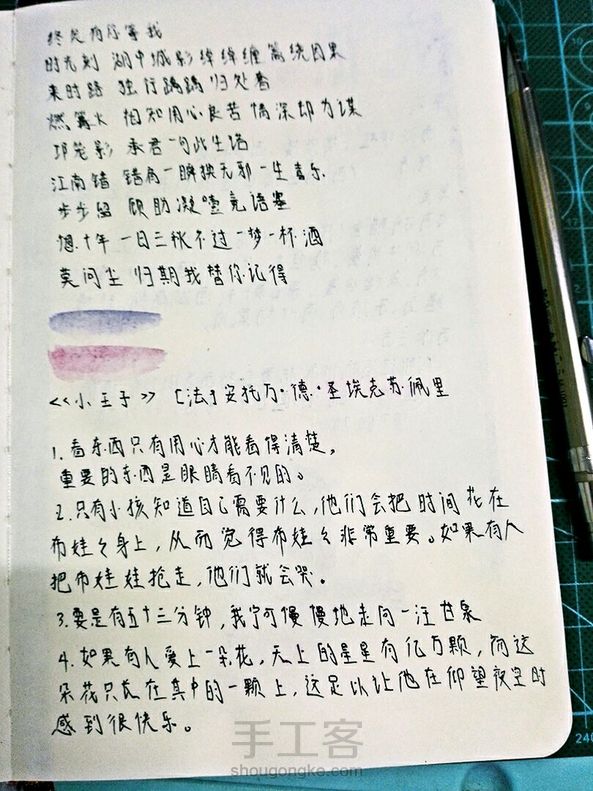 终究有序等我
时光刻 湖中城影绰绰缠篱绕因果
来时路 独行踽踽归处者
燃篝火 相知用心良苦情深却为谋
邛笼影 承君一句此生诺
江南错 错肩一瞬换无邪一生喜乐
步步留 顾盼凝噎竟语塞
想十年 一日三秋不过一梦一杯酒
莫问尘 归期我替你记得
<<小王子>> [法]安托万·德·圣埃克苏佩里
1.看东西只有用心才能看得清楚。
重要的东西是眼睛看不见的。
2.只有小孩知道自己需要什么,他们会把时间花在
布娃々身上,从而觉得布娃々非常重要。如果有人
把布娃娃抢走,他们就会哭。
3.要是有五十三分钟,我宁可慢慢地走向一汪甘泉
4.如果有人爱上一朵花,天上的星星有亿万颗,而这
朵花只长在其中的一颗上,这足以让他在仰望夜空时
感到很快乐。
手工客
shougongke.com
240